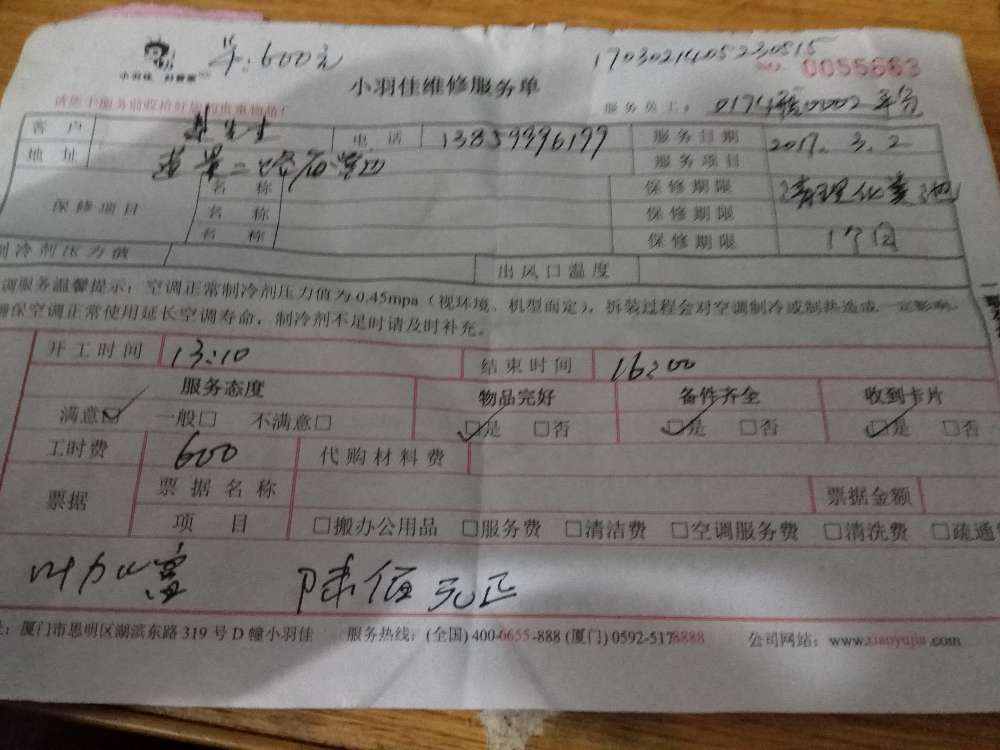 小羽佳 好管家 600元
17030214052305​15
小羽佳维修服务单 0055663
请您于服务前收拾好您的贵重物品！ 服务员工：
客户 先生 电话 13859996199 服务日期 2017.3.2
地址 莲景二路 服务项目 清理化粪池
保修项目 名称 保修期限
名称 保修期限
名称 保修期限 1个月
制冷剂压力值 出风口温度
调服务温馨提示：空调正常制冷剂压力值为0.45mpa（视环境、机型而定），拆装过程会对空调制冷或制热造成一定影响
确保空调正常使用延长空调寿命，制冷剂不足时请及时补充。
开工时间 13:10 结束时间 16:00
服务态度 物品完好 备件齐全 收到卡片
满意☑ 一般□ 不满意□ ☑是 □否 ☑是 □否 ☑是 □否
工时费 600 代购材料费
票据 票据名称 票据金额
项目 □搬办公用品 □服务费 □清洁费 □空调服务费 □清洗费 □疏通
陆佰元正
厦门市思明区湖滨东路319号D幢小羽佳 服务热线：(全国)400-6655-888(厦门)0592-5178888 公司网站：www.xiaoyujia.com